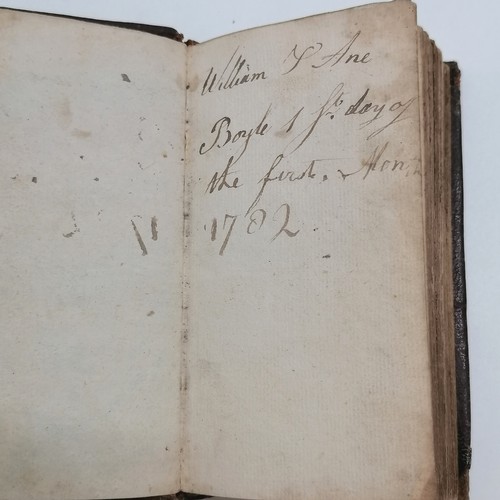 William & Ane
Boyle 1 st. day of
the first. Mon
1782